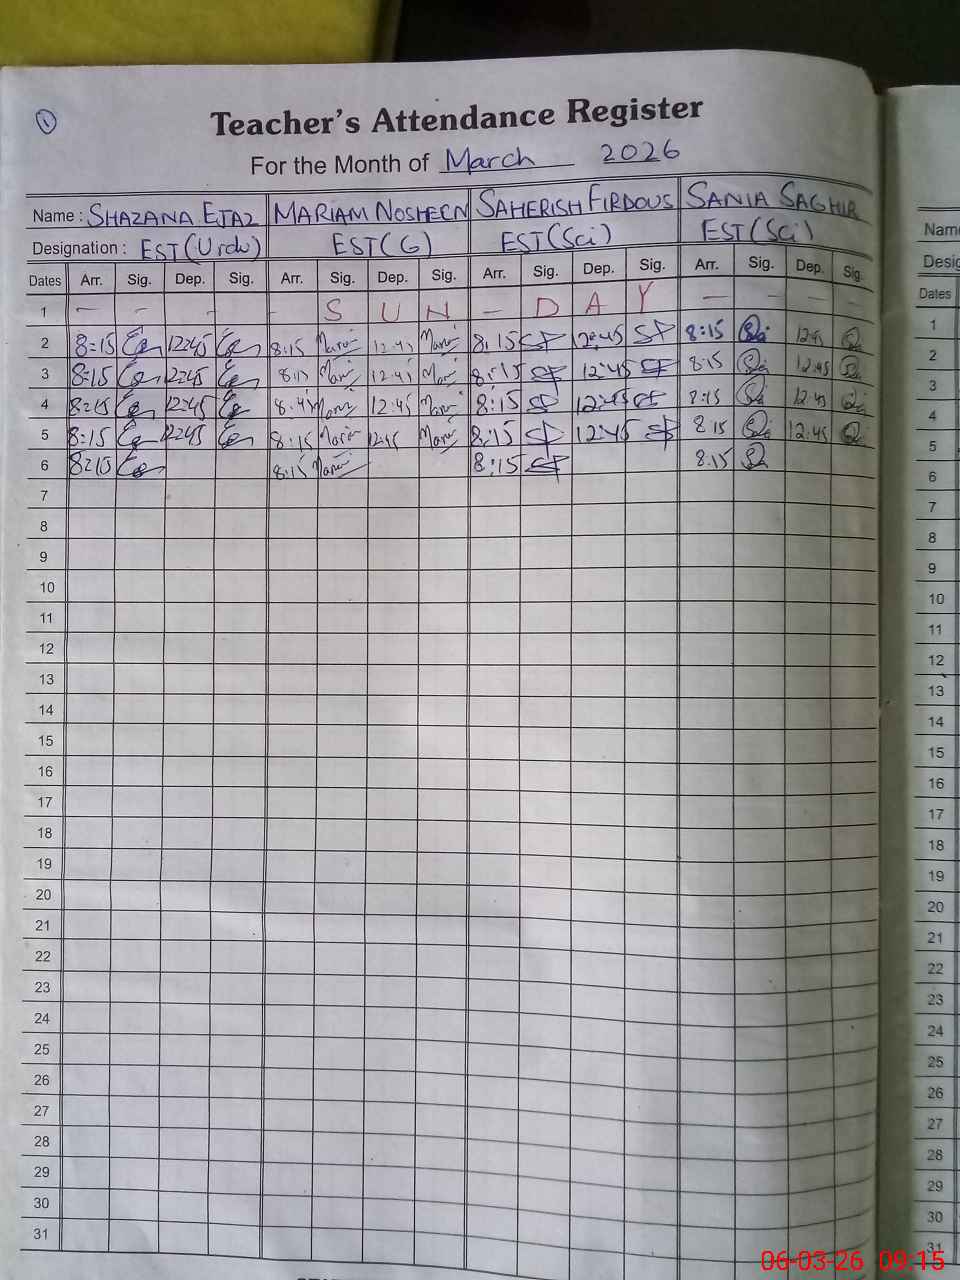 1
Teacher's Attendance Register
For the Month of March 2026
Name : SHAZANA EJAZ MARIAM NOSHEEN SAHERISH FIRDOUS SANIA SAGHIR
Designation : EST (Urdu) EST (G) EST (Sci) EST (Sci)
Dates Arr. Sig. Dep. Sig. Arr. Sig. Dep. Sig. Arr. Sig. Dep. Sig. Arr. Sig. Dep. Sig.
1 - - - - - S U N - D A Y - - - -
2 8:15 12:45 8:15 12:45 8:15 SF 12:45 SF 8:15 12:45
3 8:15 12:45 8:15 12:45 8:15 SF 12:45 SF 8:15 12:45
4 8:15 12:45 8:45 12:45 8:15 SF 12:45 SF 8:15 12:45
5 8:15 12:45 8:15 12:45 8:15 SF 12:45 SF 8:15 12:45
6 8:15 8:15 8:15 SF 8.15
7
8
9
10
11
12
13
14
15
16
17
18
19
20
21
22
23
24
25
26
27
28
29
30
31
Dates
1
2
3
4
5
6
7
8
9
10
11
12
13
14
15
16
17
18
19
20
21
22
23
24
25
26
27
28
29
30
31
06-03-26 09:15